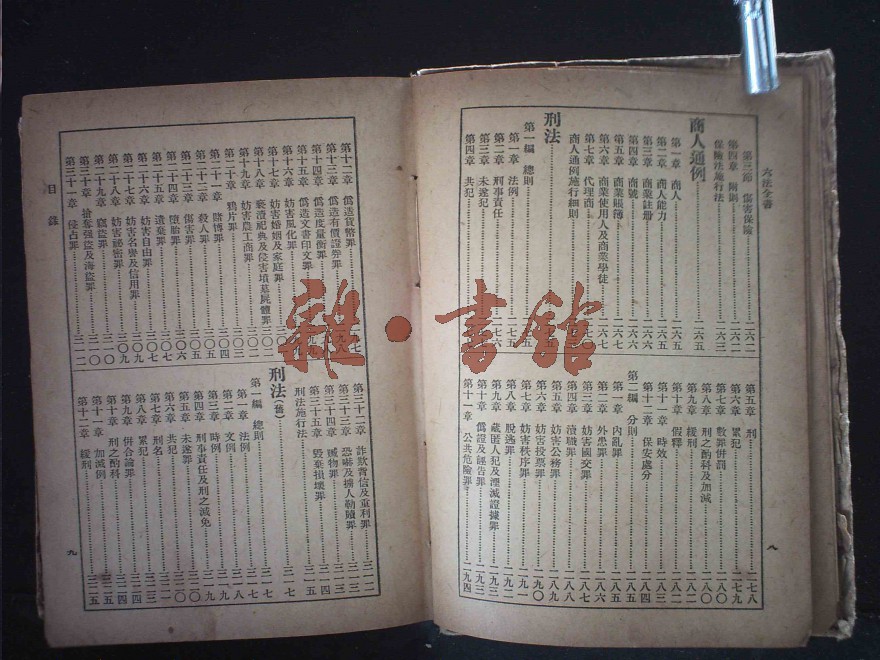 六法全書
第三節 傷害保險 二六二
第四章 附則 二六二
保險法施行法 二六三
商人通例 二六五
第一章 商人 二六五
第二章 商人能力 二六五
第三章 商業註冊 二六六
第四章 商號 二六六
第五章 商業賬簿 二六七
第六章 商業使用人及商業學徒 二六七
第七章 代理商
商人通例施行細則
刑法
第一編 總則
第一章 法例 二七五
第二章 刑事責任 二七六
第三章 未遂犯
第四章 共犯
第五章 刑 二七八
第六章 累犯 二七九
第七章 數罪併罰
第八章 刑之酌科及加減 二八〇
第九章 緩刑 二八一
第十章 假釋 二八二
第十一章 時效 二八三
第十二章 保安處分 二八四
第二編 分則
第一章 內亂罪
第二章 外患罪 二八六
第三章 妨害國交罪 二八七
第四章 瀆職罪 二八八
第五章 妨害公務罪 二八九
第六章 妨害投票罪 二九〇
第七章 妨害秩序罪 二九一
第八章 脫逃罪 二九二
第九章 藏匿人犯及湮滅證據罪 二九三
第十章 僞證及誣告罪 二九三
第十一章 公共危險罪 二九四
八
第十二章 僞造貨幣罪
第十三章 僞造有價證券罪
第十四章 僞造度量衡罪
第十五章 僞造文書印文罪
第十六章 妨害風化罪
第十七章 妨害婚姻及家庭罪
第十八章 褻瀆祀典及侵害墳墓屍體罪 三〇二
第十九章 妨害農工商罪 三〇三
第二十章 鴉片罪 三〇三
第二十一章 賭博罪 三〇四
第二十二章 殺人罪 三〇五
第二十三章 傷害罪 三〇五
第二十四章 墮胎罪 三〇六
第二十五章 遺棄罪 三〇七
第二十六章 妨害自由罪 三〇七
第二十七章 妨害名譽及信用罪 三〇九
第二十八章 妨害祕密罪 三〇九
第二十九章 竊盜罪 三一〇
第三十章 搶奪強盜及海盜罪 三一〇
第三十一章 侵占罪 三一二
第三十二章 詐欺背信及重利罪 三一二
第三十三章 恐嚇及擄人勒贖罪 三一三
第三十四章 贓物罪 三一四
第三十五章 毀棄損壞罪 三一五
刑法施行法
刑法(舊) 三一七
第一編 總則 三一七
第一章 法例 三一七
第二章 文例 三一八
第三章 時例 三一九
第四章 刑事責任及刑之減免 三一九
第五章 未遂罪 三二〇
第六章 共犯 三二〇
第七章 刑名
第八章 累犯 三二三
第九章 併合論罪 三二四
第十章 刑之酌科 三二四
第十一章 加減例 三二五
第十二章 緩刑 三二五
目錄
九
雜·書館